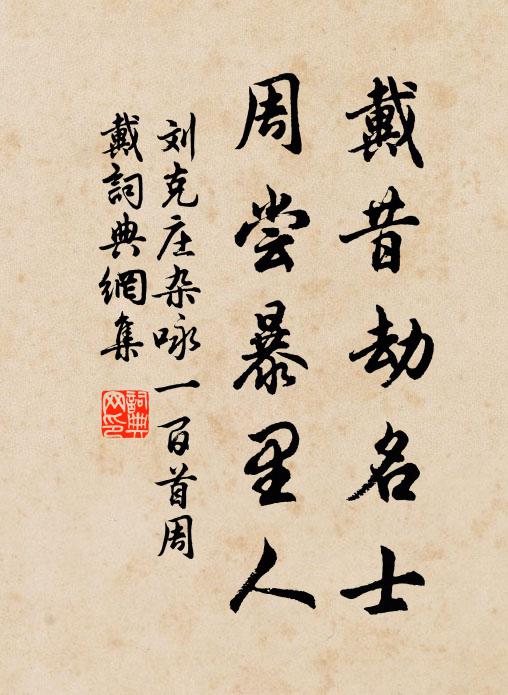 戴昔劫名士
周尝暴里人
刘克庄杂咏一百首周
戴詞典網集
詞典网印